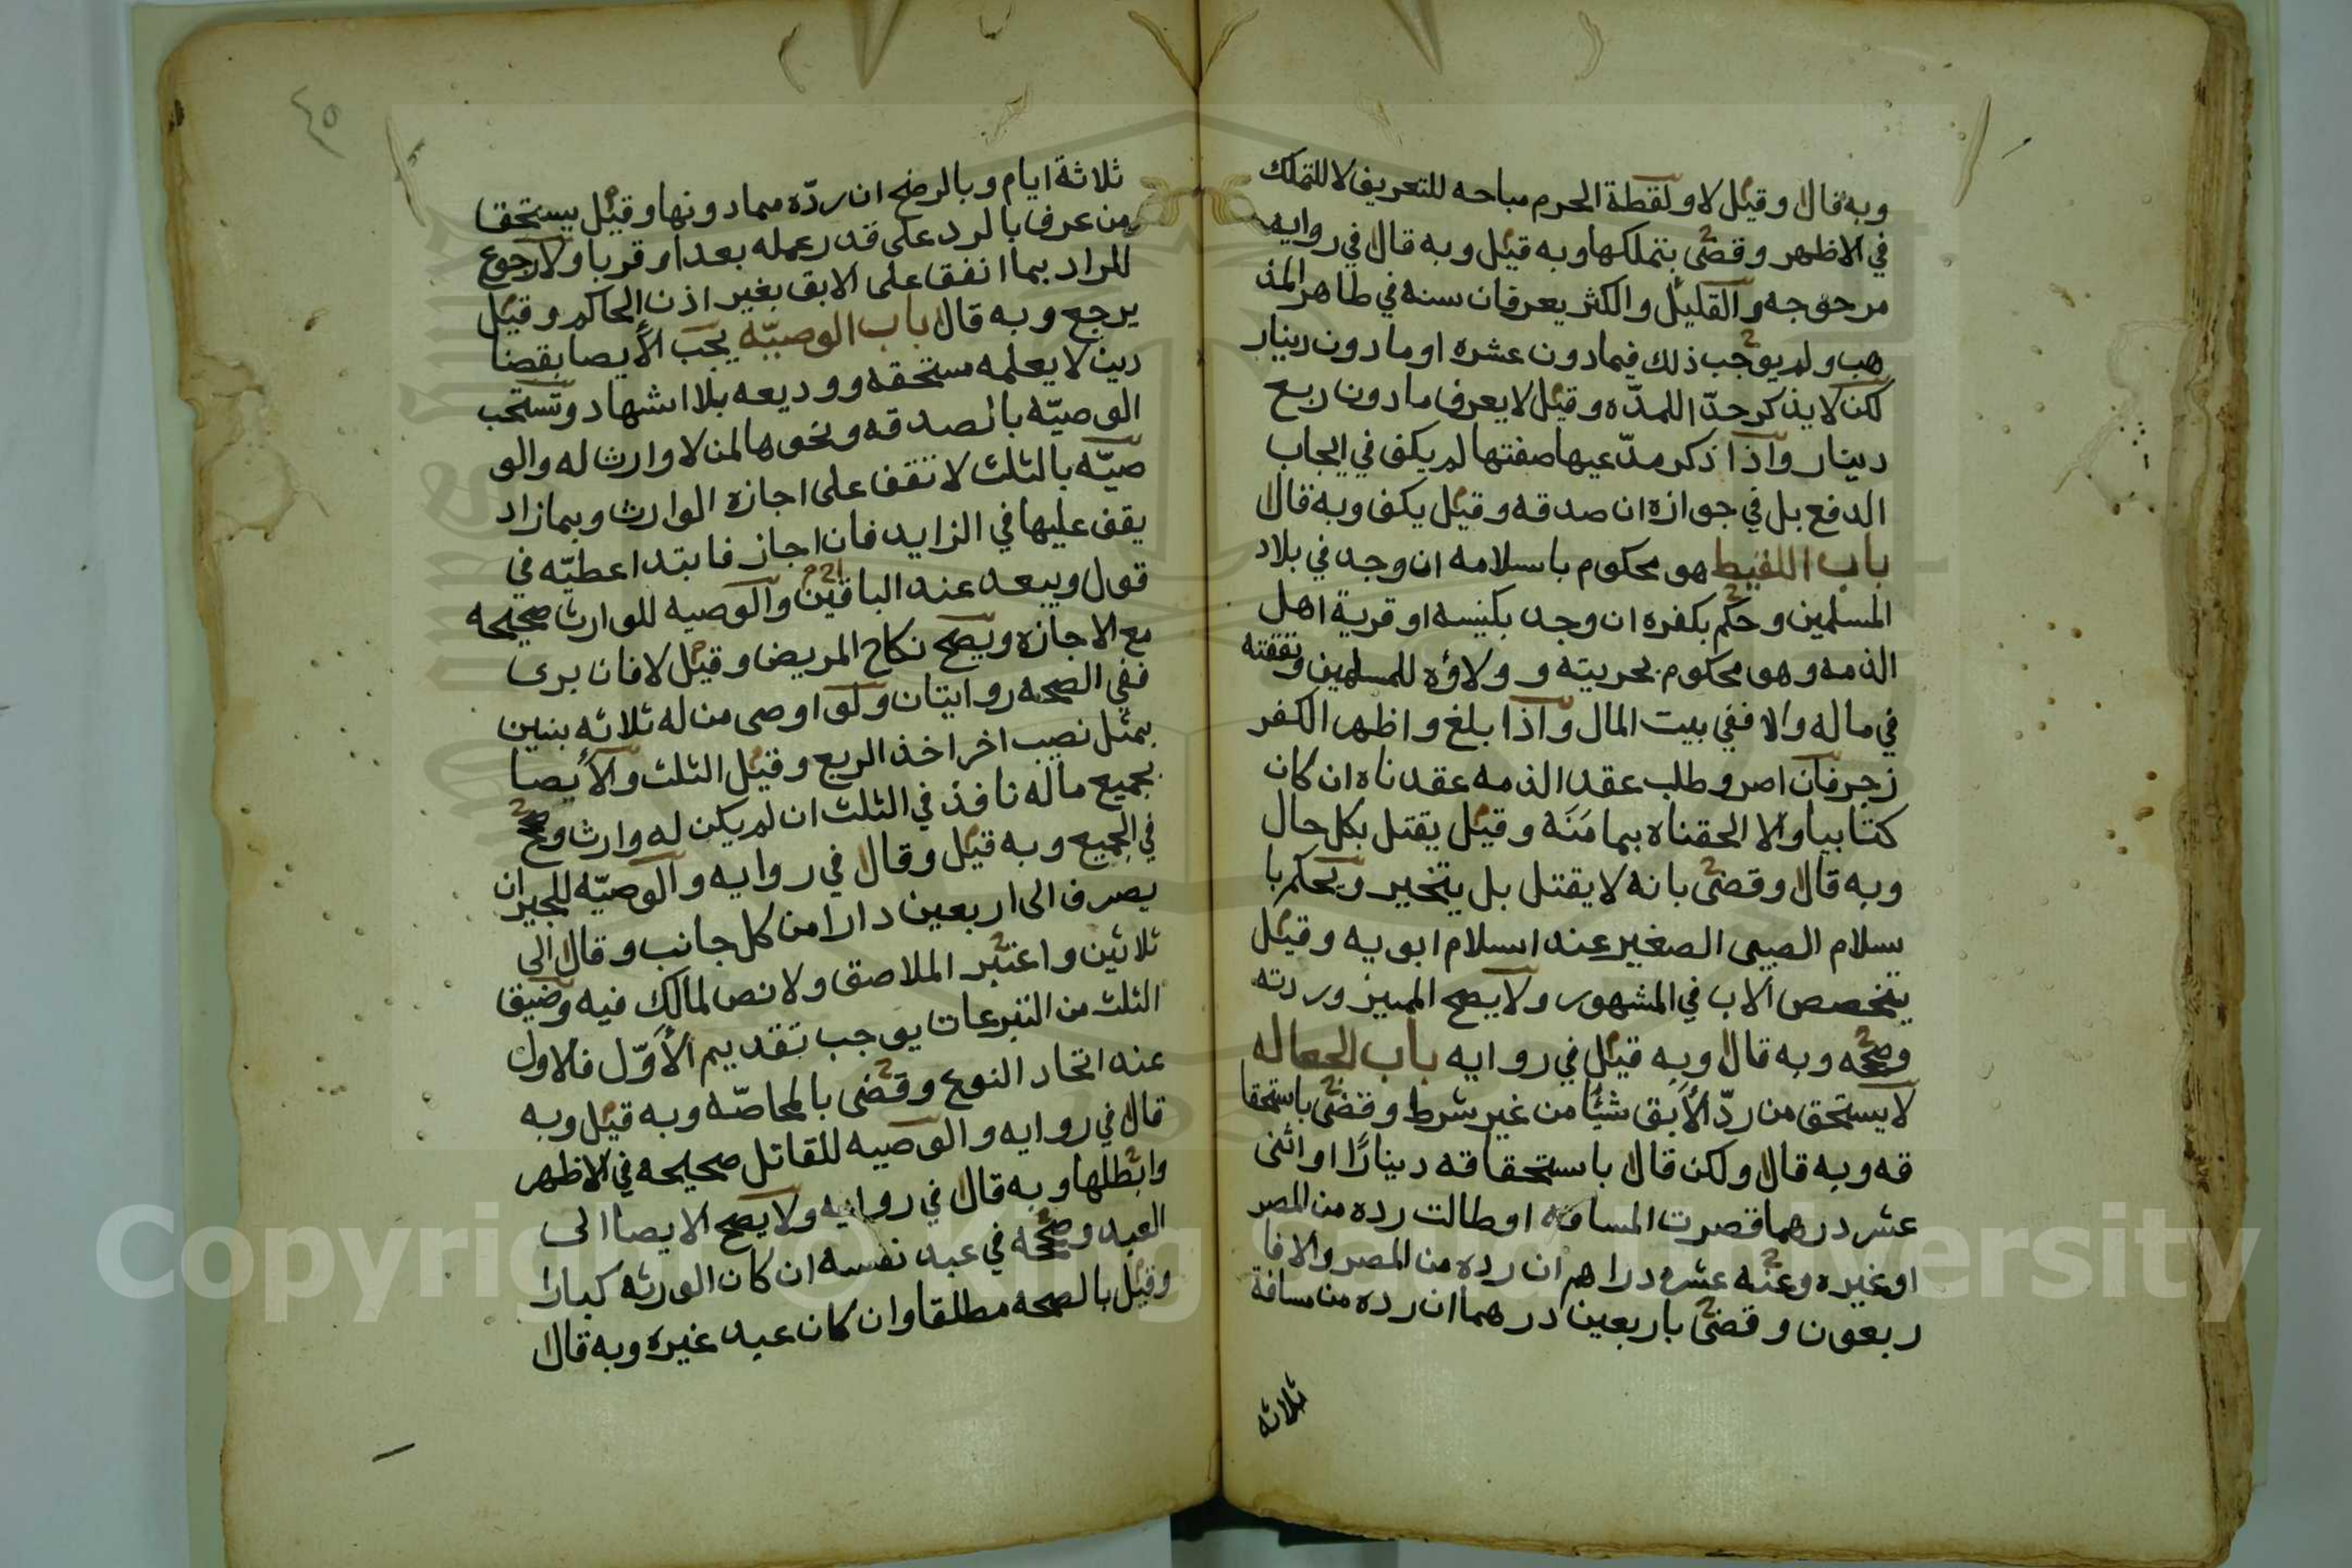 وبه قال وقيل لا ولقطة الحرم مباحه للتعريف لا للتملك
في الاظهر وقضى بتملكها وبه قيل وبه قال في روايه
مرجوجه والقليل والكثر يعرفان سنه في طاهر المذ
هب ولم يوجب ذلك فيما دون عشره او مادون دينار
لكن لا يذكر حدّا للمدّه وقيل لا يعرف مادون ربع
دينار واذا ذكر مدّعيها صفتها لم يكف في ايجاب
الدفع بل في جوازه ان صدقه وقيل يكف وبه قال
باب اللقيط هو محكوم باسلامه ان وجد في بلاد
المسلمين وحكم بكفره ان وجد بكنيسه او قرية اهل
الذمه وهو محكوم بحريته و ولاؤه للمسلمين ونفقته
في ماله والا ففي بيت المال واذا بلغ واظهر الكفر
زجر فان اصر وطلب عقد الذمه عقدناه ان كان
كتابيا والا الحقناه بمامنَه وقيل يقتل بكل حال
وبه قال وقضى بانه لا يقتل بل يتخير ويحكم با
سلام الصبي الصغير عند اسلام ابويه وقيل
يتخصص الاب في المشهور ولا يصح المميز وردته
وصححه وبه قال وبه قيل في روايه باب الجعاله
لا يستحق من ردّ الأبق شيئا من غير شرط وقضى باستحقا
قه وبه قال ولكن قال باستحقاقه دينارًا او اثنى
عشر درهما قصرت المسافه او طالت رده من المصر
او غيره وعنه عشره دراهم ان رده من المصر والا فا
ربعون وقضى باربعين درهما ان رده من مسافة
ثلاثه
٤٥
ثلاثة ايام وبالرضح ان ردّه مما دونها وقيل يستحقا
من عرف بالرد على قدر عمله بعدا او قربا ولا رجوع
للمراد بما انفق على الابق بغير اذن الحاكم وقيل
يرجع وبه قال باب الوصيّه يجب الأيصا بقضا
دين لا يعلمه مستحقه ووديعه بلا اشهاد وتستحب
الوصيّه بالصدقه ونحوها لمن لا وارث له والو
صيّه بالثلث لا تقف على اجازه الوارث وبما زاد
يقف عليها في الزايد فان اجاز فابتدا عطيّه في
قول ويبعد عند الباقين والوصيه للوارث صحيحه
مع الاجازه ويصح نكاح المريض وقيل لا فان برى
ففي الصحه روايتان ولو اوصى من له ثلاثه بنين
بمثل نصيب اخر اخذ الربع وقيل الثلث والأيصا
بجميع ماله نافذ في الثلث ان لم يكن له وارث وصح
في الجميع وبه قيل وقال في روايه والوصيّه للجيران
يصرف الى اربعين دارا من كل جانب وقال الى
ثلاثين واعتبر الملاصق ولا نص لمالك فيه وضيق
الثلث من التبرعات يوجب تقديم الأوّل فالاول
عنه اتحاد النوع وقضى بالمحاصّه وبه قيل وبه
قال في روايه والوصيه للقاتل صحيحه في الاظهر
وابطلها وبه قال في روايه ولا يصح الايصا الى
العبد وصححه في عبد نفسه ان كان الورثه كبارا
وقيل بالصحه مطلقا وان كان عبد غيره وبه قال
Copyright © King Saud University